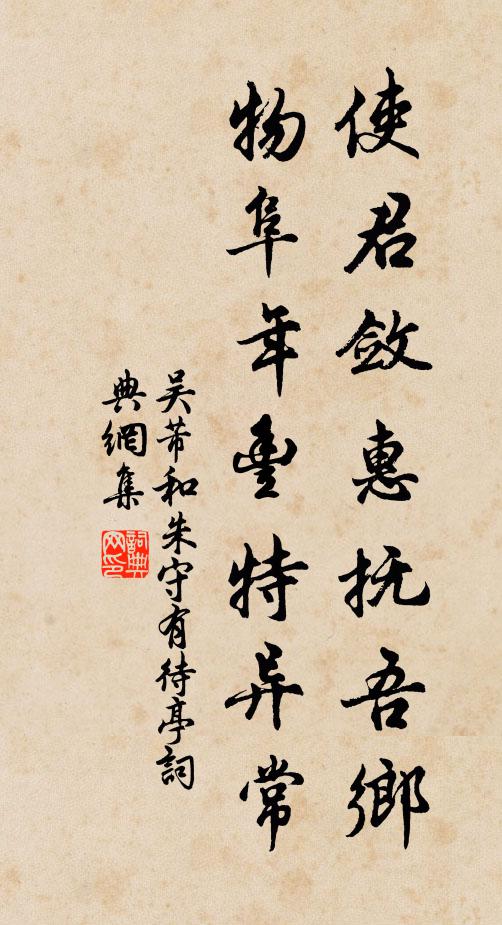 使君敛惠抚吾鄉
物阜年豊特异常
吴芾和朱守有待亭詞
典網集
詞典网印